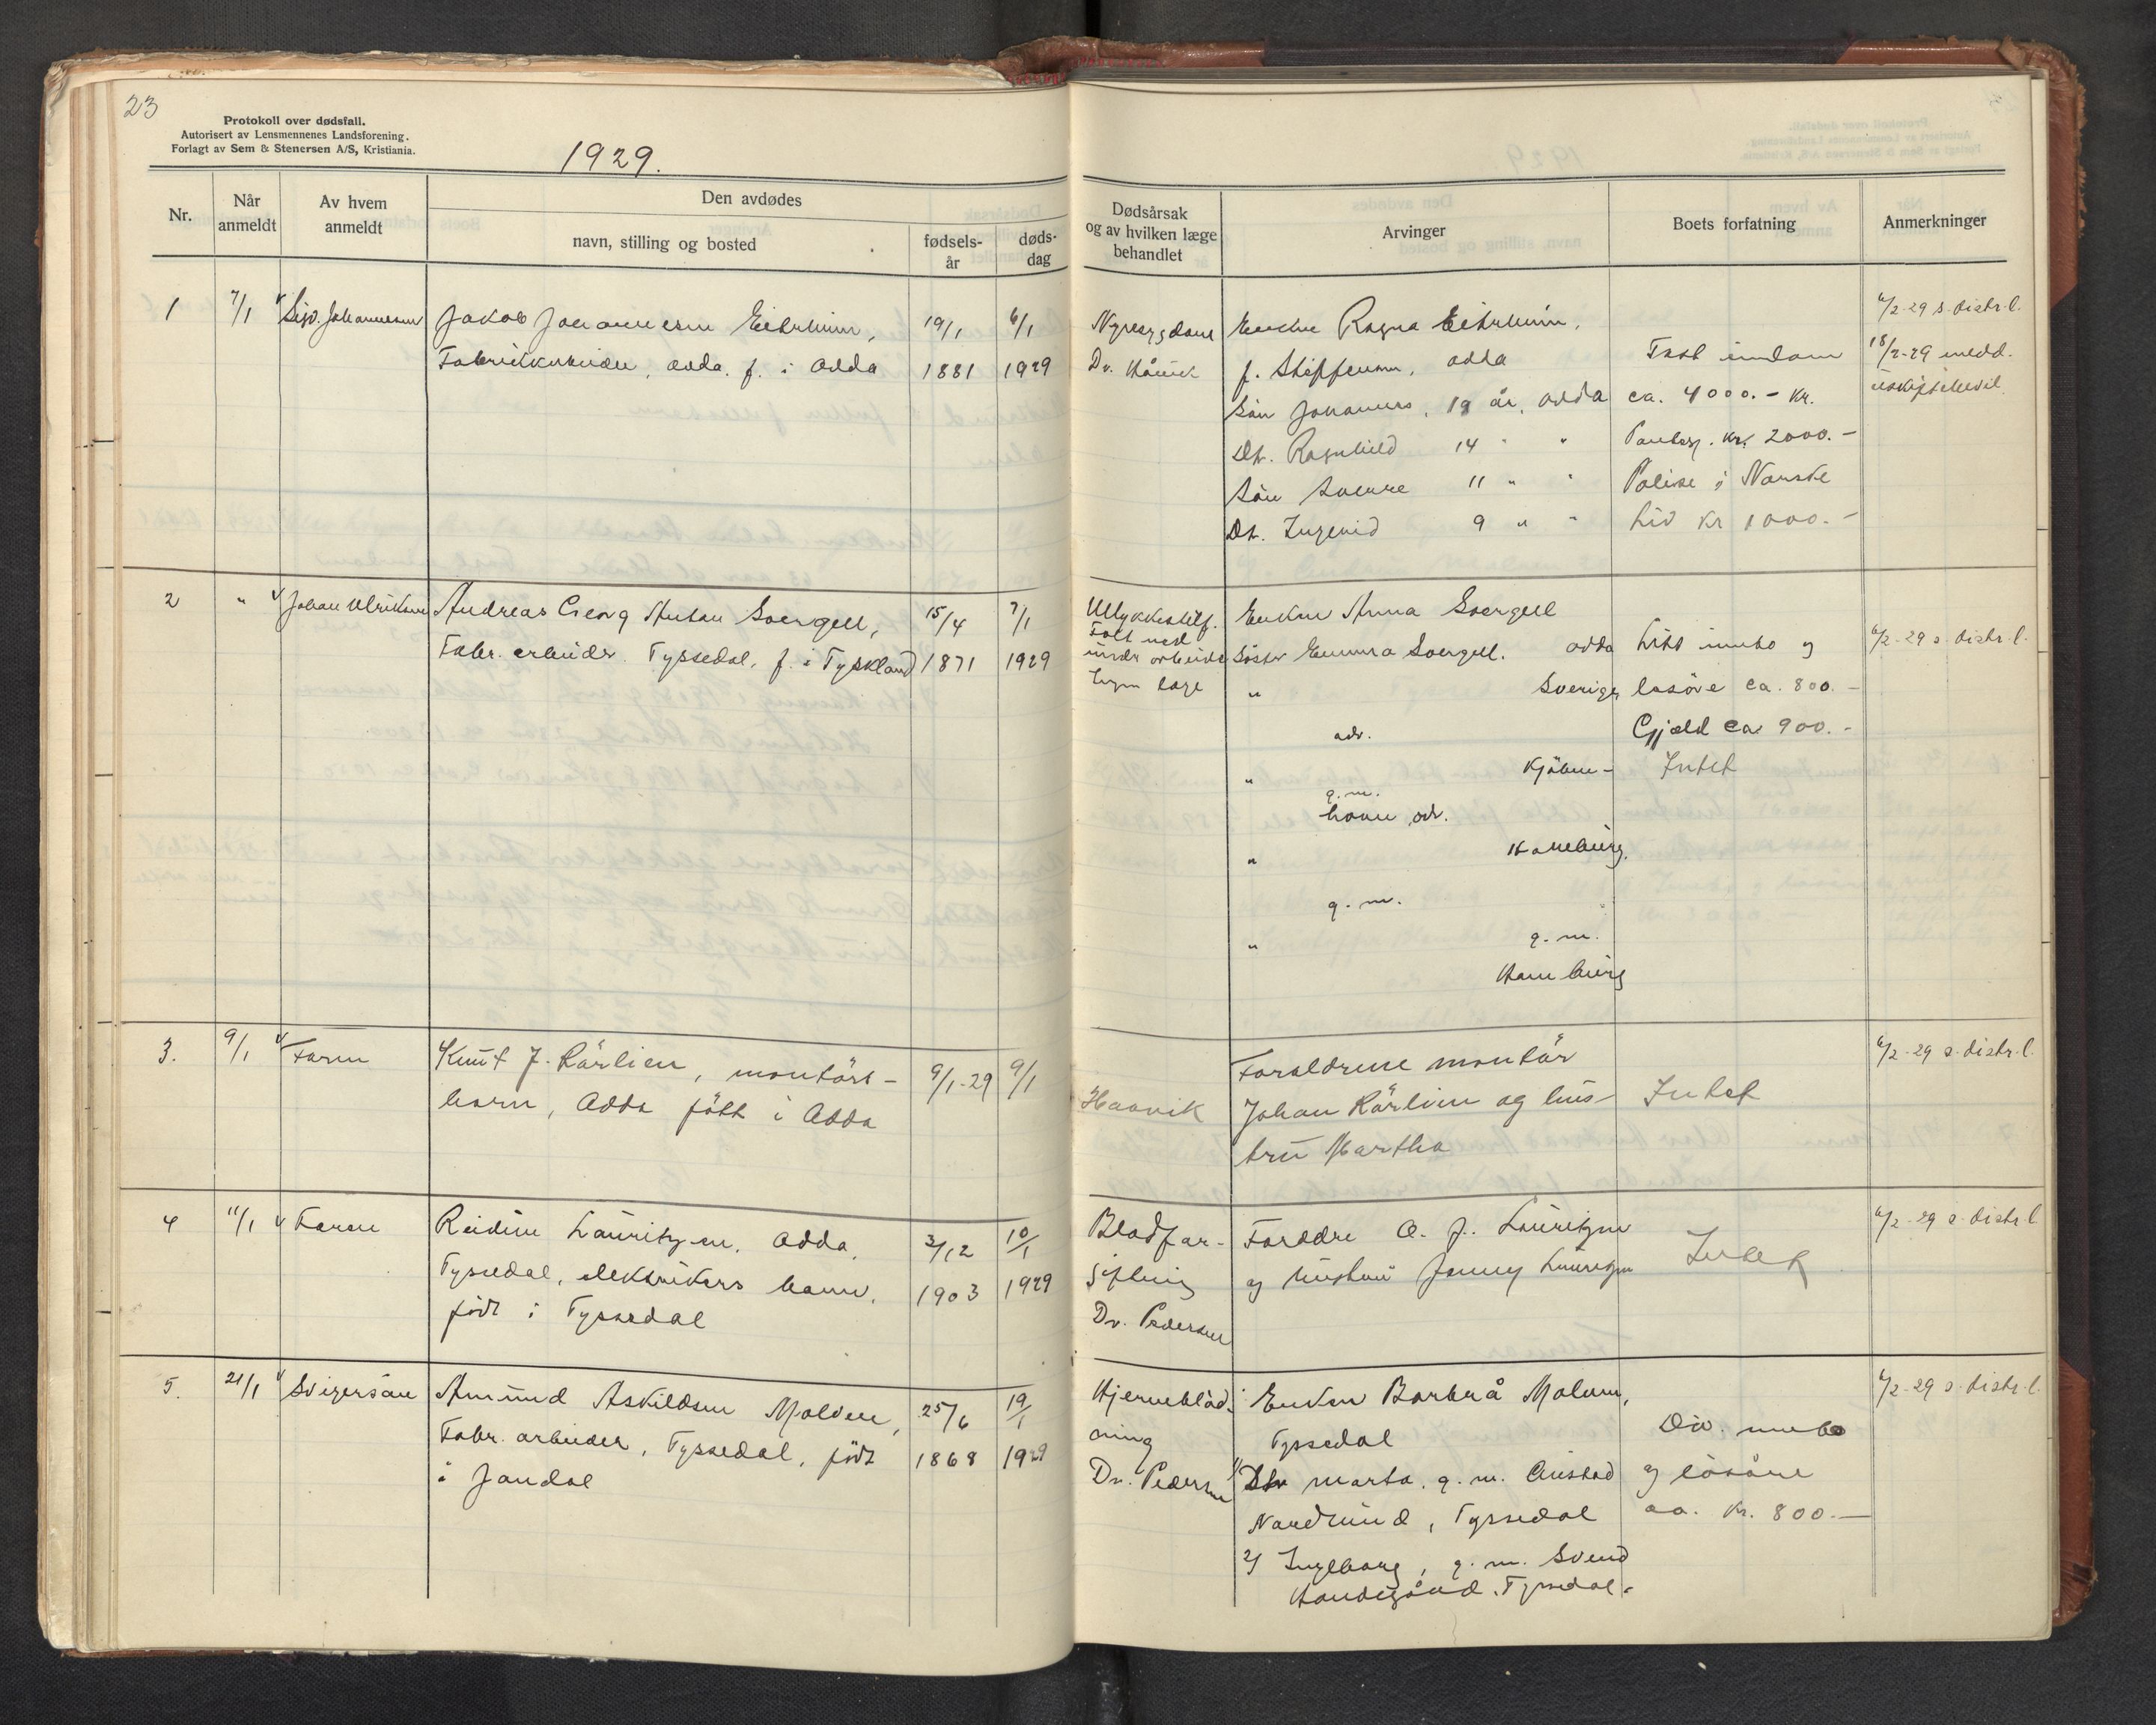 23
Protokoll over dødsfall.
Autorisert av Lensmennenes Landsforening.
Forlagt av Sem & Stenersen A/S, Kristiania.
1929.
Nr.
Når anmeldt
Av hvem anmeldt
Den avdødes
navn, stilling og bosted
fødsels-
år
døds-
dag
Dødsårsak
og av hvilken læge
behandlet
Arvinger
Boets forfatning
Anmerkninger
1 7/1 Sigv. Johannessen
Jakob Johannesen Eitrheim,
Fabrikkarbeider, Odda. f. i Odda
19/1
1881
6/1
1929
Nyresygdom
Dr. Håvik
Enken Ragna Eitrheim,
f. Steffensen, Odda
Sön Johannes, 19 år, Odda
Dt. Ragnhild 14 " "
Sön Sverre 11 " "
Dt. Ingerid 9 " "
Fast eiendom
ca. 4000.- Kr.
Panteg. Kr. 2000.-
Polise i Norske
Liv Kr 1000.-
6/2-29 s. distr.l.
18/2-29 medd.
uskiftebevil.
2 " Johan Ulriksen
Andreas Georg Anton Soergell,
Fabr. arbeider. Tyssedal, f. i Tyskland
15/4
1871
7/1
1929
Ulykkestilf.
Falt ned
under arbeide
Ingen læge
Enken Anna Soergell
Söster Emma Soergell. Odda
" Sverige
adr.
" Kjöben-
g.m.
havn adr.
" Hamburg.
g. m.
" g. m.
Hamburg
Litt innbo og
lösöre ca. 800.-
Gjæld ca 900.-
Intet
6/2-29 s. distr.l.
3. 9/1 Faren
Knut J. Rårlien, montörs-
barn, Odda född i Odda
9/1-29
9/1
Haavik
Foreldrene montör
Johan Rårlien og hus-
tru Martha
Intet
6/2-29 s. distr.l.
4 11/1 Faren
Reidun Lauritzen, Odda,
Tyssedal, elektrikers barn,
född i Tyssedal
3/12
1903
10/1
1929
Blodfor-
giftning
Dr. Pedersen
Foreldre O. J. Lauritzen
og hustru Jenny Lauritzen
Intet
6/2-29 s. distr.l.
5. 21/1 Svigersön
Amund Askildsen Molven,
Fabr. arbeider, Tyssedal, född
i Jondal
25/6
1868
19/1
1929
Hjerneblöd-
ning
Dr. Pedersen
Enken Barbrå Molven,
Tyssedal
1/ Dtr Marta, g. m. Gustad
Nordrund, Tyssedal
2/ Ingeborg, g. m. Svend
Handegård, Tyssedal.
Div. innbo
og lösöre
ca. Kr. 800.—
6/2-29 s. distr.l.